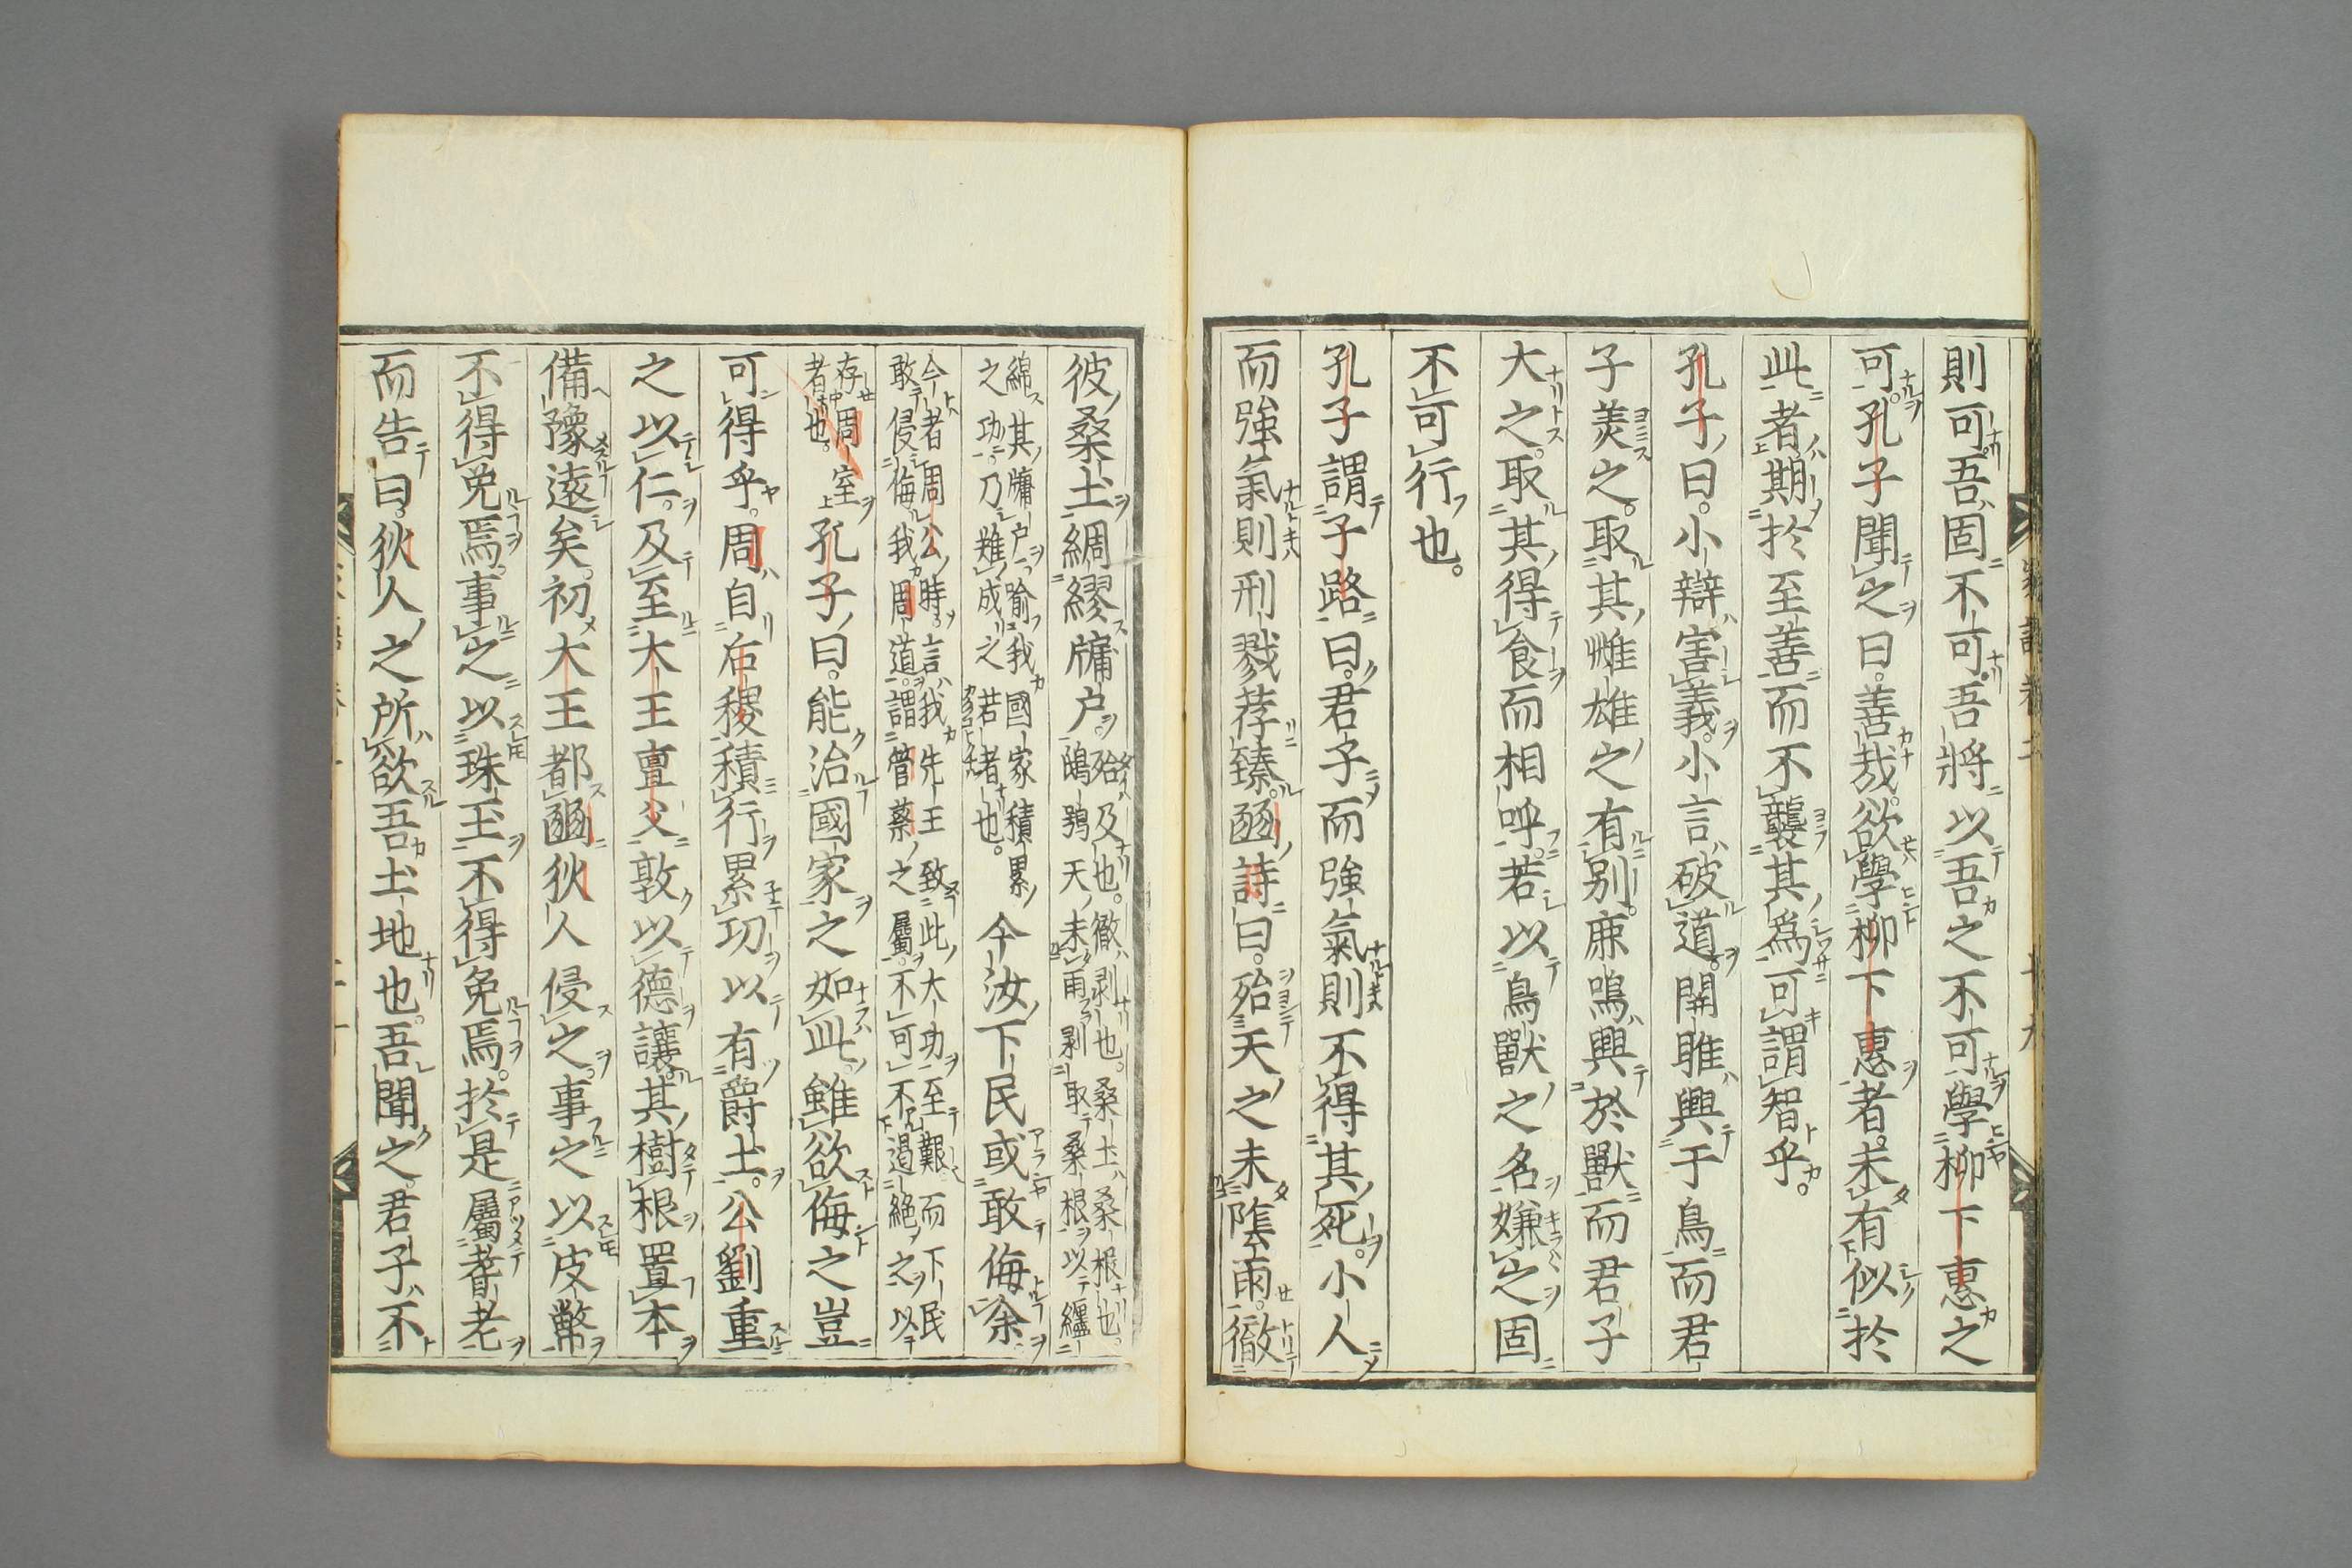 則可吾固不可吾將以吾之不可學柳下惠之
可孔子聞之曰善哉欲學柳下惠者未有似於
此者期於至善而不襲其爲可謂智乎
孔子曰小辯害義小言破道關雎興于鳥而君
子美之取其雌雄之有別鹿鳴興於獸而君子
大之取其得食而相呼若以鳥獸之名嫌之固
不可行也
孔子謂子路曰君子而強氣則不得其死小人
而強氣則刑戮荐臻豳詩曰殆天之未陰雨徹
彼桑土綢繆牖戶殆及也徹剥也桑土桑根也
鴟鴞天未雨剥取桑根以纏
綿其牖戶喻我國家積累
之功乃難成之若者也今汝下民或敢侮余
今者周公時言我先王致此大功至艱而下民
敢侵侮我周道謂管蔡之屬不可不遏絕之以
存周室
者也孔子曰能治國家之如此雖欲侮之豈
可得乎周自后稷積行累功以有爵土公劉重
之以仁及至大王亶父敦以德讓其樹根置本
備豫遠矣初大王都豳狄人侵之事之以皮幣
不得免焉事之以珠玉不得免焉於是屬耆老
而告曰狄人之所欲吾土地也吾聞之君子不